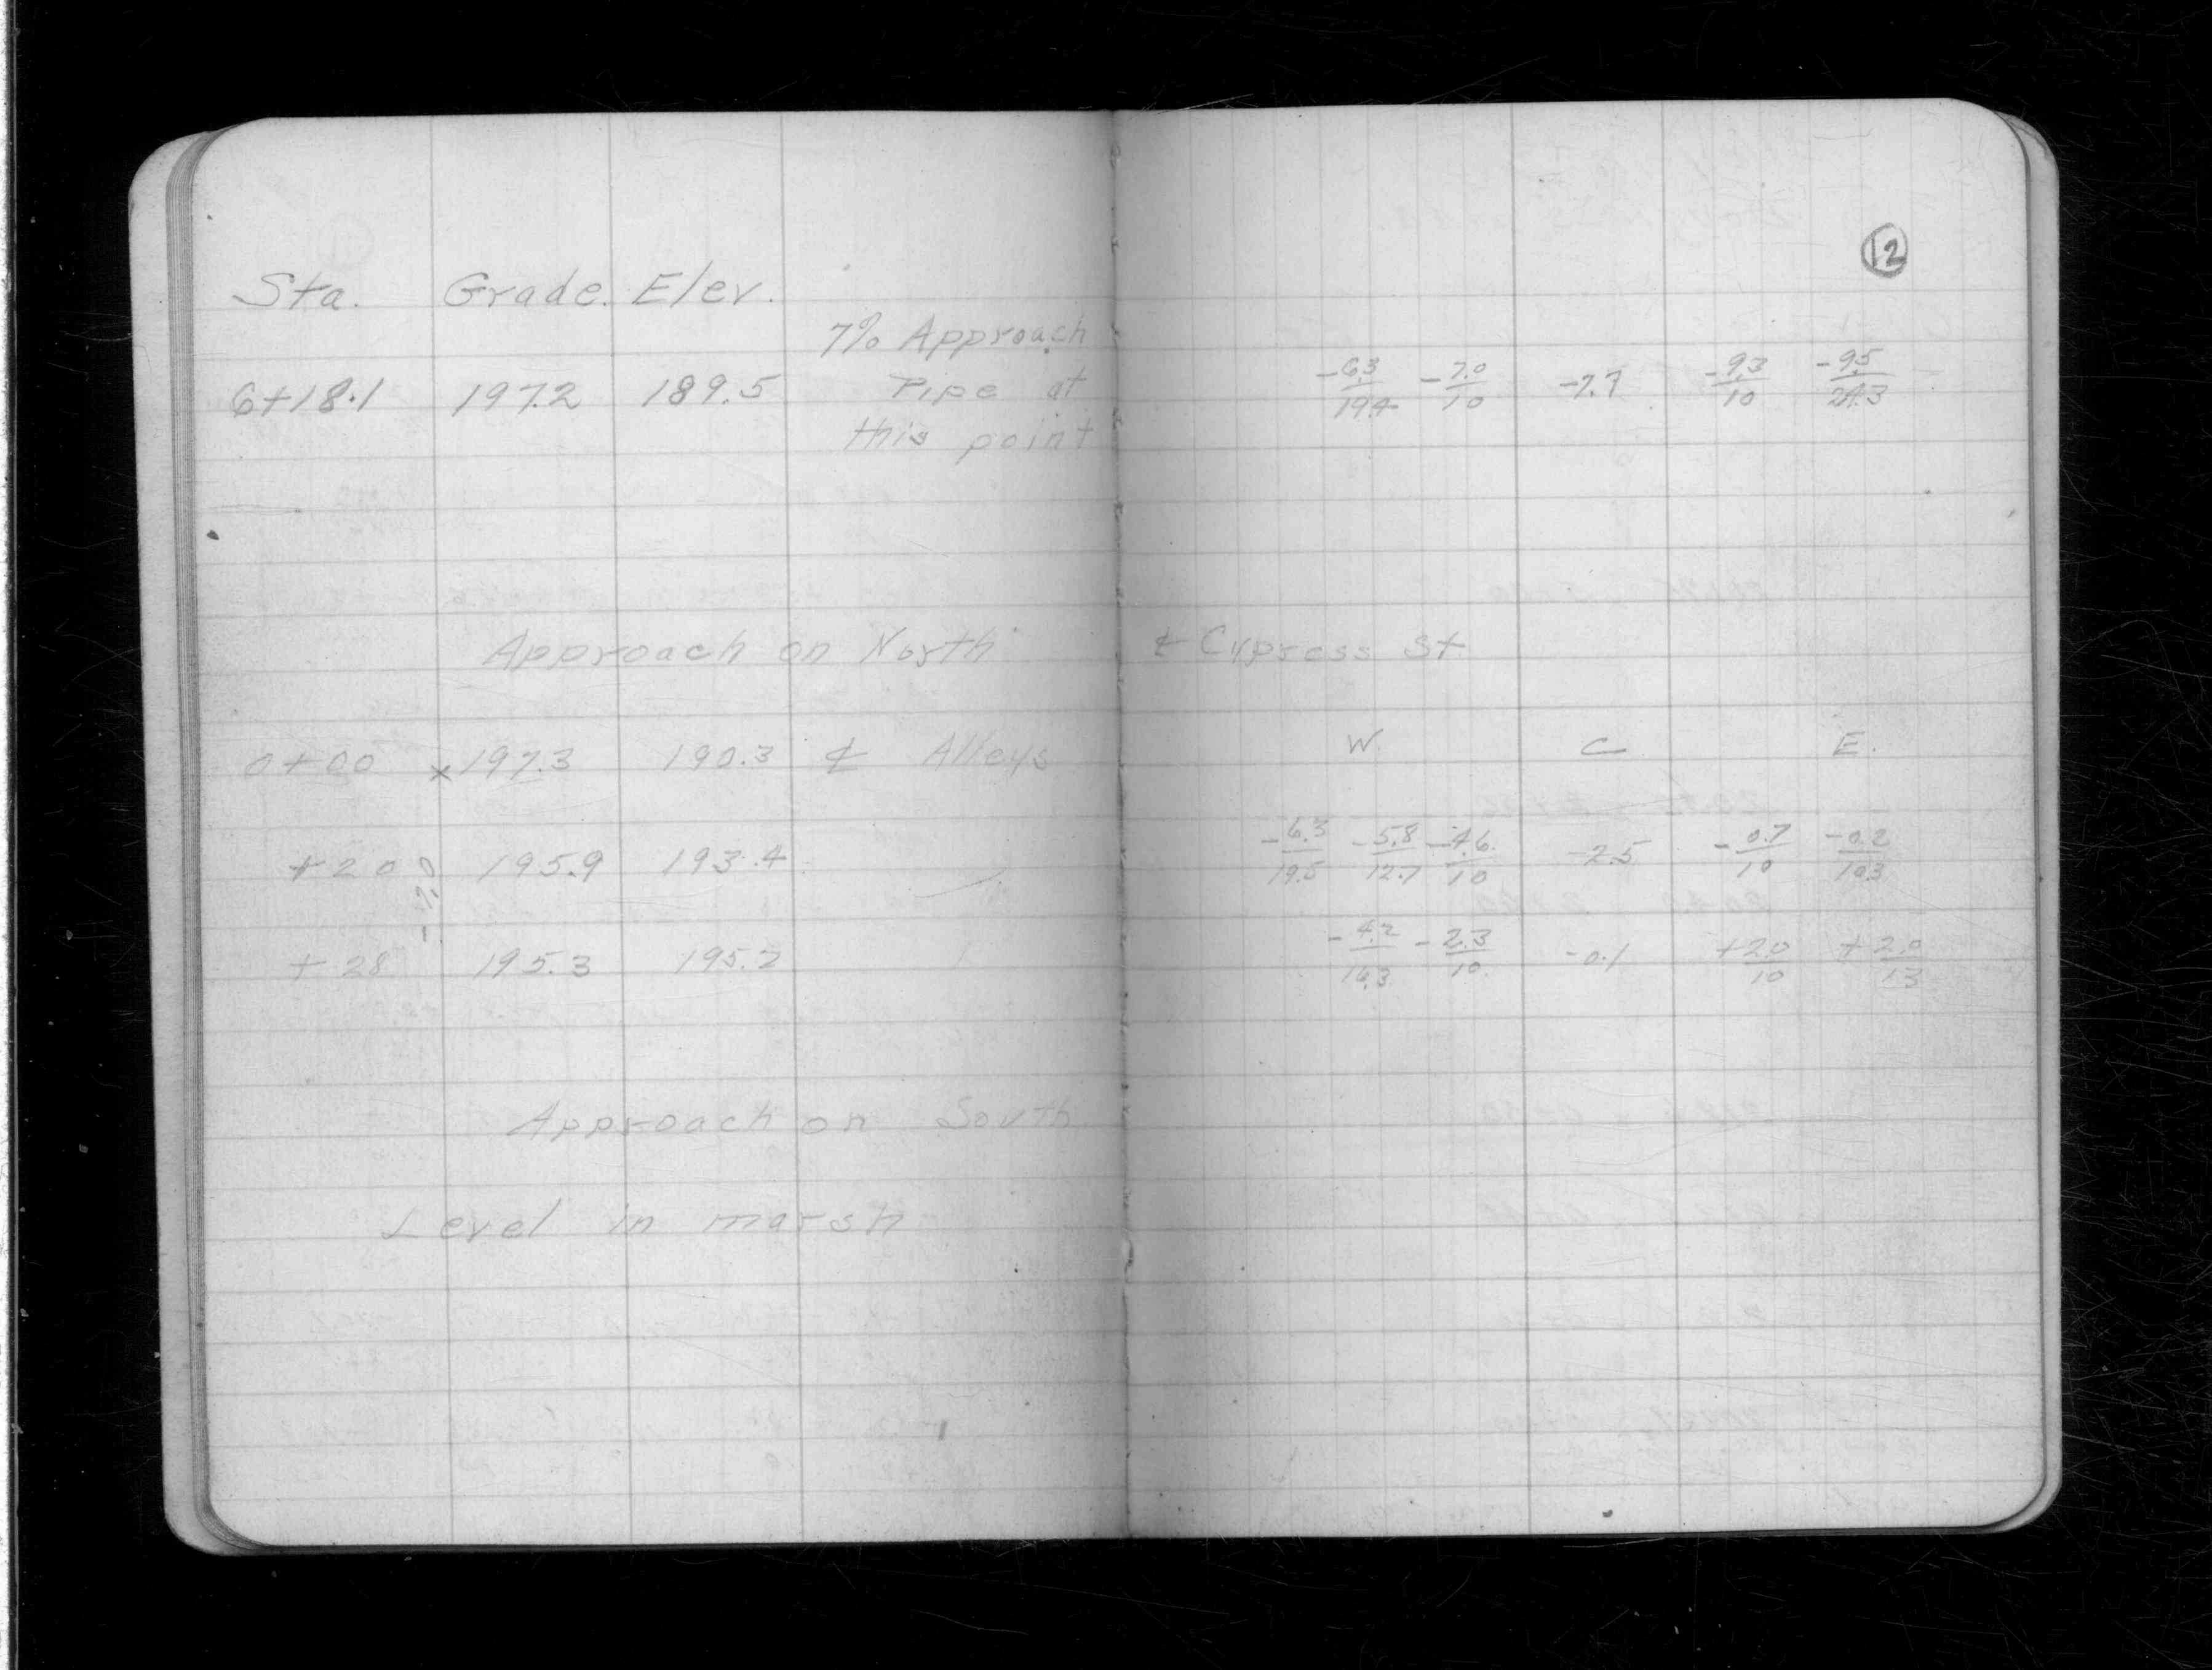 12
Sta. Grade. Elev.
7% Approach
6+18.1 197.2 189.5 Pipe at -6.3/19.4 -7.0/10 -7.7 -9.3/10 -9.5/24.3
this point
Approach on North ℄ Cypress St.
0+00 x197.3 190.3 ℄ Alleys W. C E.
+20 195.9 193.4 -6.3/19.5 -5.8/12.7 -4.6/10 -2.5 -0.7/10 -0.2/10.3
-7.0
+28 195.3 195.2 -4.2/16.3 -2.3/10 -0.1 +2.0/10 +2.0/13
Approach on South
Level in marsh